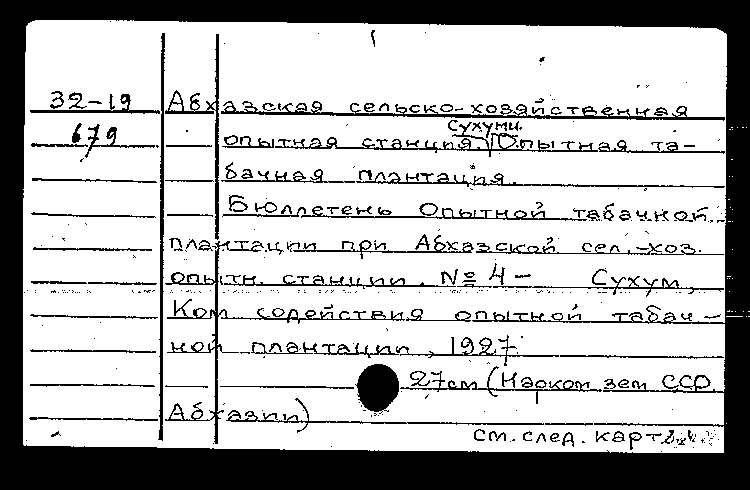 32-19 Абхазская сельско-хозяйственная
Сухуми.
679 опытная станция. Опытная та-
бачная плантация.
Бюллетень Опытной табачной
плантации при Абхазской сел.-хоз.
опытн. станции. № 4 - Сухум,
Ком содействия опытной табач-
ной плантации, 1927.
27см (Нарком зем ССР
Абхазии)
см. след. карт